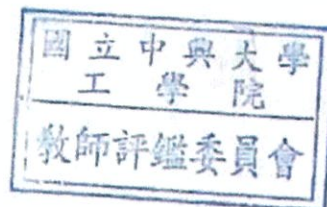 國立中興大學
工學院
教師評鑑委員會